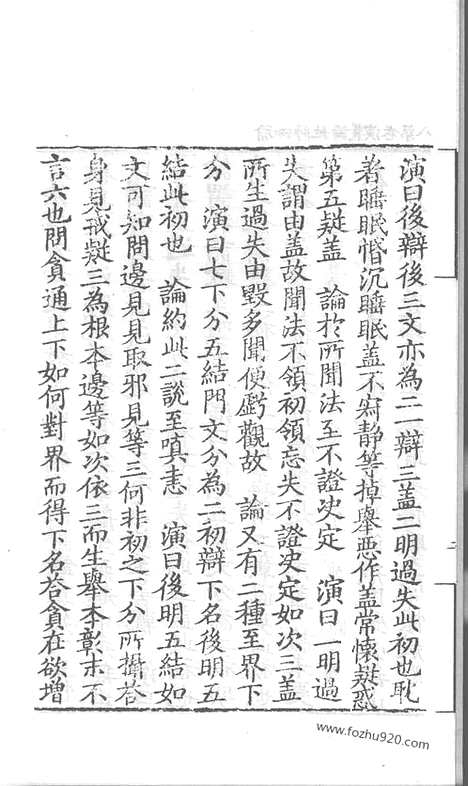 演曰後辯後三文亦為二一辯三蓋二明過失此初也耽
著睡眠惛沉睡眠蓋不寂靜等掉舉惡作蓋常懷疑惑
第五疑蓋　論於所聞法至不證決定　演曰一明過
失謂由蓋故聞法不領初領忘失不證決定如次三蓋
所生過失由毀多聞便虧觀故　論又有二種至界下
分　演曰七下分五結門文分為二初辯下名後明五
結此初也　論約此二說至嗔恚　演曰後明五結如
文可知問邊見見取邪見等三何非初之下分所攝荅
身見戒疑三為根本邊等如次依三而生舉本彰末不
言六也問貪通上下如何對界而得下名荅貪在欲增
www.fozhu920.com